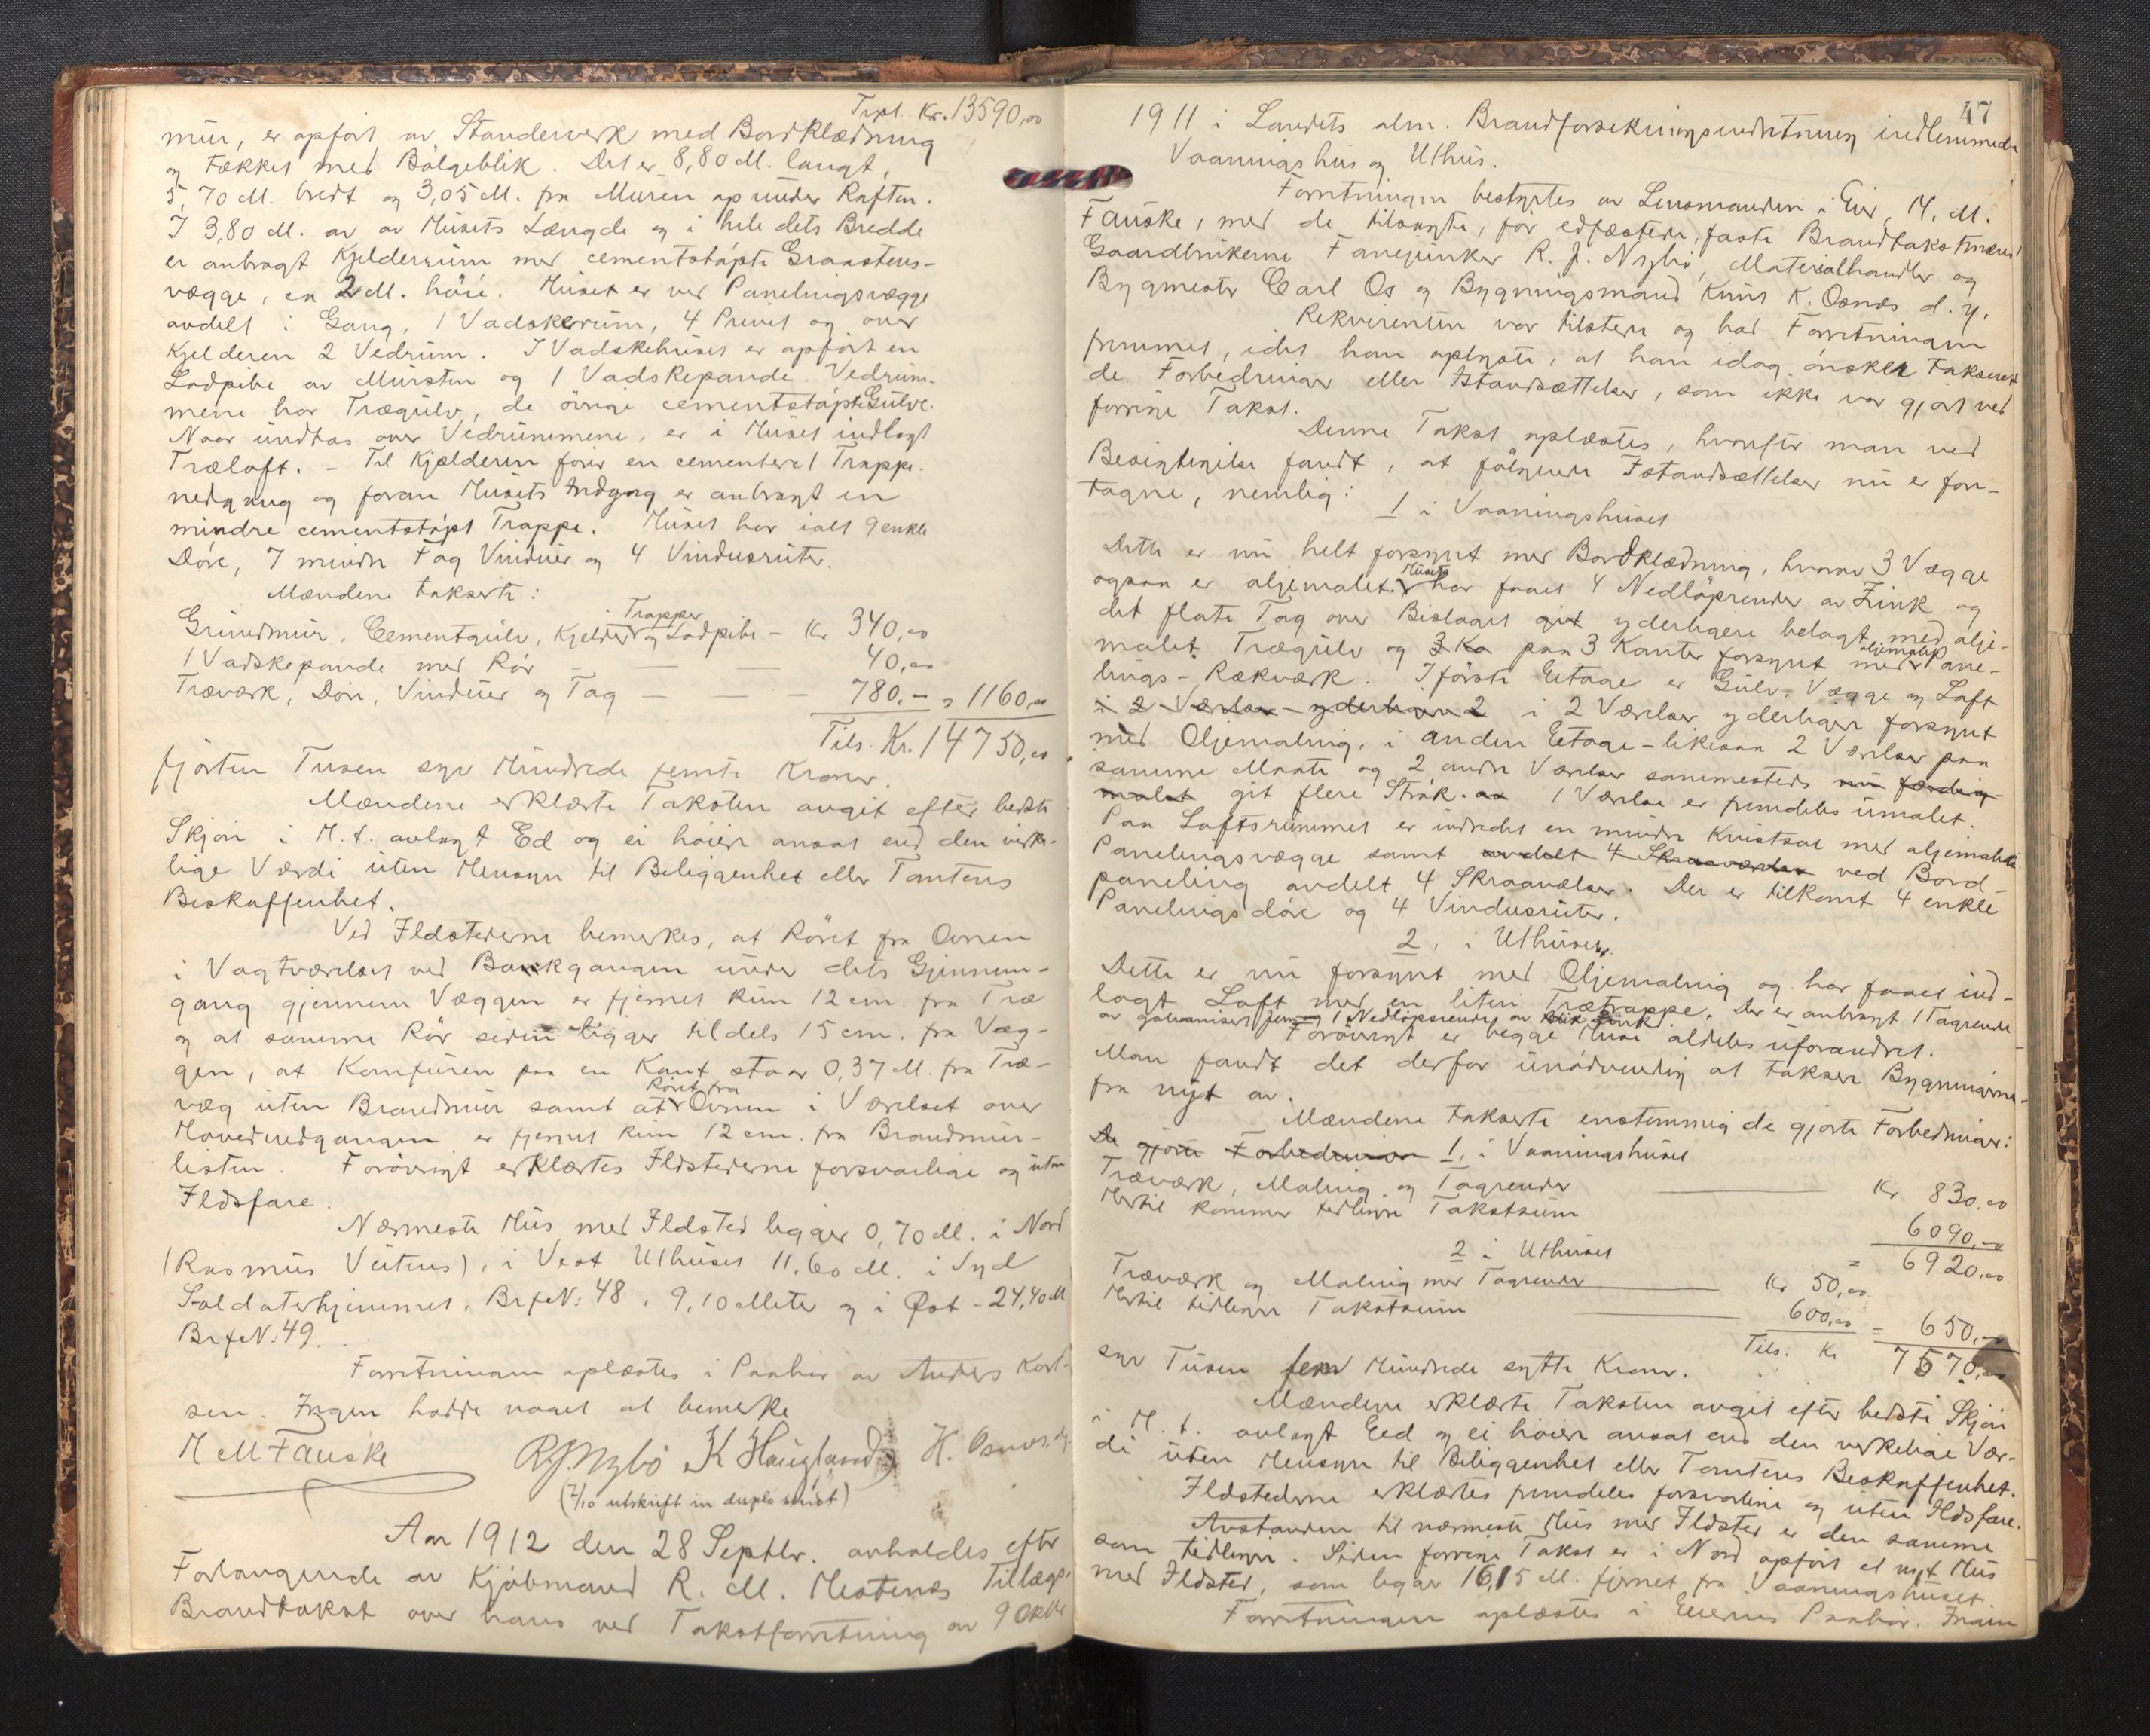 Trpt. Kr. 13590,00
mur, er opført av Standerverk med Bordklædning
og tækket med Bølgeblik. Det er 8,80 M. langt,
5,70 M. bredt og 3,05 M. fra Muren op under Raften.
I 3,80 M. av av Husets Længde og i hele dets Bredde
er anbragt Kjelderrum med cementstøpte Graastens-
vægge, ca 2 M. høie. Huset er ved Panelingsvægge
avdelt i Gang, 1 Vadskerum, 4 Privet og over
Kjelderen 2 Vedrum. I Vadskehuset er opført en
Lodpibe av Mursten og 1 Vadskepande. Vedrum-
mene har Trægulv, de øvrige cementstøpte Gulve.
Naar undtas over Vedrummene, er i Huset indlagt
Træloft. - Til Kjælderen fører en cementeret Trappe-
nedgang og foran Husets Indgang er anbragt en
mindre cementstøpt Trappe. Huset har ialt 9 enkle
Døre, 7 mindre Fag Vinduer og 4 Vindusruter.
Mændene takserte:
Trapper
Grundmur, Cementgulv, Kjelder og Lodpibe - Kr 340,00
1 Vadskepande med Rør - — — 40,00
Træværk, Døre, Vinduer og Tag — — — 780.- = 1160,00
Tils. Kr. 14750,00
fjorten Tusen syv Hundrede femti Kroner.
Mændene erklærte Taksten avgit efter bedste
Skjøn i H. t. avlagt Ed og ei høiere ansat end den virke-
lige Værdi uten Hensyn til Beliggenhet eller Tomtens
Beskaffenhet.
Ved Ildstederne bemerkes, at Røret fra Ovnen
i Vagtværelset ved Bankgangen under dets Gjennem-
gang gjennem Væggen er fjernet kun 12 cm. fra Træ
og at samme Rør siden ligger tildels 15 cm. fra Væg-
gen, at Komfuren paa en Kant staar 0,37 M. fra Træ-
Røret fra
væg uten Brandmur samt at Ovnen i Værelset over
Hovedindgangen er fjernet kun 12 cm. fra Brandmur-
listen. Forøvrigt erklærtes Ildstederne forsvarlige og uten
Ildsfare.
Nærmeste Hus med Ildsted ligger 0,70 M. i Nord
(Rasmus Veitens), i Vest Uthuset 11,60 M. i Syd
Soldaterhjemmet, Brf N: 48, 9,10 Meter og i Øst - 24,40 M
Brf N: 49.
Forretningen oplæstes i Paahør av Anders Kort-
sen. Ingen hadde noget at bemerke
H M Fauske R J Nybö K Haugland H. Osnes d.y.
(7/10 utskrift in duplo utskt)
Aar 1912 den 28 Septbr. avholdtes efter
Forlangende av Kjøbmand R. M. Hestenes Tillægs-
Brandtakst over hans ved Takstforretning av 9 Oktbr
47
1911 i Landets alm. Brandforsikringsindretning indlemmede
Vaaningshus og Uthus.
Forretningen bestyrtes av Lensmanden i Eid, H. M.
Fauske, med de tilsagte, før edfæstede, faste Brandtakstmænd
Gaardbrukerne Fanejunker R. J. Nybö, Materialhandler og
Bygmester Carl Os og Bygningsmand Knut K. Osnes d. y.
Rekvirenten var tilstede og had Forretningen
fremmet, idet han oplyste, at han idag ønsker takseret
de Forbedringer eller Istandsættelser, som ikke var gjort ved
forrige Takst.
Denne Takst oplæstes, hvorefter man ved
Besigtigelse fandt, at følgende Istandsættelser nu er fore-
tagne, nemlig:
1 i Vaaningshuset
Dette er nu helt forsynt med Bordklædning, hvorav 3 Vægge
Huset
ogsaa er oljemalet. har faaet 4 Nedløpsrender av Zink og
det flate Tag over Bislaget git yderligere belagt med olje-
oljemalet
malet Trægulv og 3 Ka paa 3 Kanter forsynt med Pane-
lings-Rækværk. I første Etage er Gulv, Vægge og Loft
i 2 Værelser yderligere 2 i 2 Værelser yderligere forsynt
med Oljemaling, i anden Etage - likesaa 2 Værelser paa
samme Maate og 2 andre Værelser sammesteds nu færdig
malet git flere Strøk. aa 1 Værelse er fremdeles umalet.
Paa Loftsrummet er indredet en mindre Kvistsal med oljemalede
Panelingsvægge samt avdelt 4 Skraaværelser ved Bord-
paneling avdelt 4 Skraaværelser. Der er tilkomt 4 enkle
Panelingsdøre og 4 Vindusruter.
2. i Uthuset.
Dette er nu forsynt med Oljemaling og har faaet ind-
lagt Loft med en liten Trætrappe. Der er anbragt 1 Tagrende
av galvanisert jern og 1 Nedløpsrende av Zink
Forøvrigt er begge Huse aldeles uforandret.
Man fandt det derfor unødvendig at taksere Bygningerne
fra nyt av.
Mændene takserte enstemmig de gjorte Forbedringer:
De gjorte Forbedringer 1. i Vaaningshuset
Træværk, Maling og Tagrender — Kr 830,00
Hertil kommer tidligere Takstsum 6090,00
= 6920,00
2 i Uthuset
Træværk og Maling med Tagrender — Kr 50,00
Hertil tidligere Takstsum — 600,00 = 650,00
Tils. Kr 7570,00
syv Tusen fem Hundrede sytti Kroner.
Mændene erklærte Taksten avgit efter bedste Skjøn
i H. t. avlagt Eed og ei høiere ansat end den virkelige Vær-
di uten Hensyn til Beliggenhet eller Tomtens Beskaffenhet.
Ildstederne erklærtes fremdeles forsvarlige og uten Ildsfare.
Avstanden til nærmeste Hus med Ildsted er den samme
som tidligere. Siden forrige Takst er i Nord opført et nyt Hus
med Ildsted, som ligger 16,15 M. fjernet fra Vaaningshuset.
Forretningen oplæstes i Eierens Paahør. Ingen